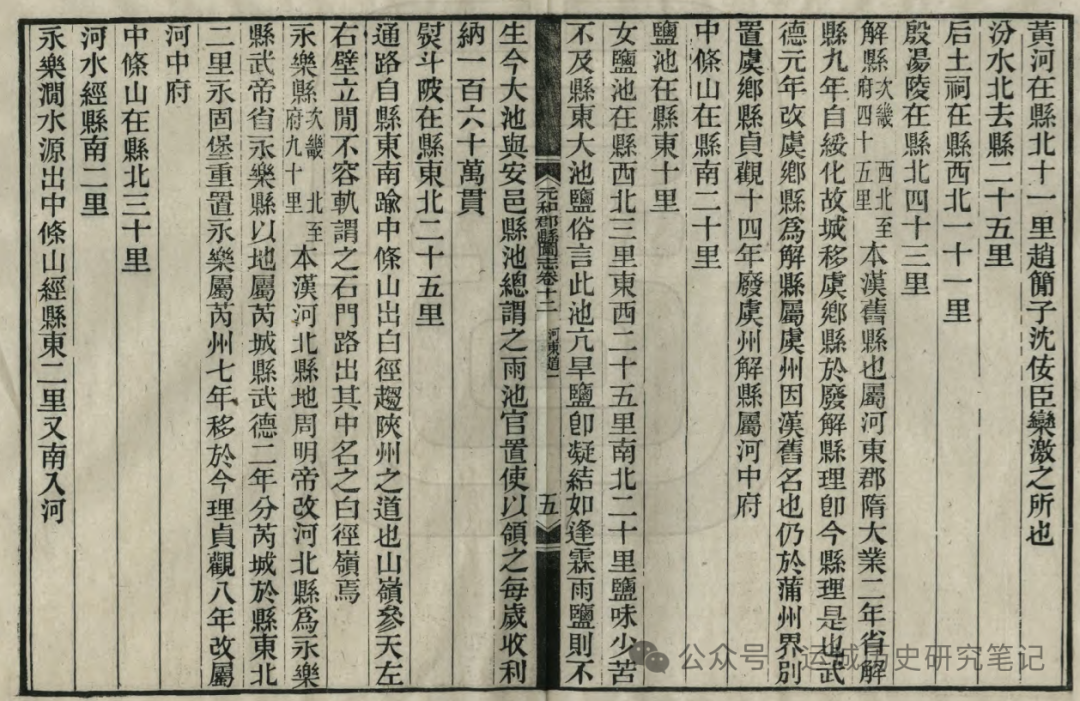 黃河在縣北十一里趙簡子沈佞臣欒激之所也
汾水北去縣二十五里
后土祠在縣西北一十一里
殷湯陵在縣北四十三里
解縣次畿 西北至府四十五里本漢舊縣也屬河東郡隋大業二年省解
縣九年自綏化故城移虞鄉縣於廢解縣理卽今縣理是也武
德元年改虞鄉縣爲解縣屬虞州因漢舊名也仍於蒲州界別
置虞鄉縣貞觀十四年廢虞州解縣屬河中府
中條山在縣南二十里
鹽池在縣東十里
女鹽池在縣西北三里東西二十五里南北二十里鹽味少苦
不及縣東大池鹽俗言此池亢旱鹽卽凝結如逢霖雨鹽則不
元和郡縣圖志卷十二 河東道一 五
生今大池與安邑縣池總謂之兩池官置使以領之每歲收利
納一百六十萬貫
熨斗陂在縣東北二十五里
通路自縣東南踰中條山出白徑趨陜州之道也山嶺參天左
右壁立閒不容軌謂之石門路出其中名之白徑嶺焉
永樂縣次畿 北至府九十里本漢河北縣地周明帝改河北縣爲永樂
縣武帝省永樂縣以地屬芮城縣武德二年分芮城於縣東北
二里永固堡重置永樂屬芮州七年移於今理貞觀八年改屬
河中府
中條山在縣北三十里
河水經縣南二里
永樂澗水源出中條山經縣東二里又南入河
公众号·运城历史研究笔记